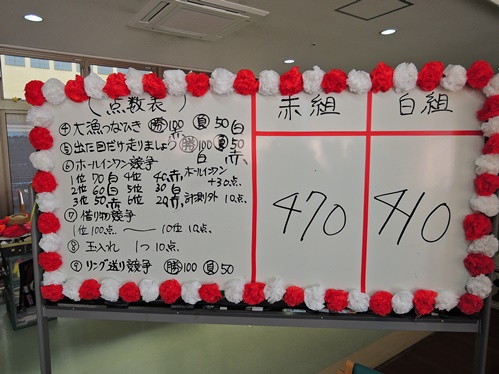 （点数表）
④ 大漁つなひき 勝100赤 負50白
⑤ 出た目だけ走りましょう 勝100白 負50赤
⑥ ホールインワン競争
1位 70白 4位 40赤 ホールインワン
2位 60白 5位 30白 +30点
3位 50赤 6位 20赤 計測外 10点
⑦ 借り物競争
1位 100点 〜 10位 10点
⑧ 玉入れ 1つ10点
⑨ リング送り競争 勝100 負50
赤組
470
白組
410